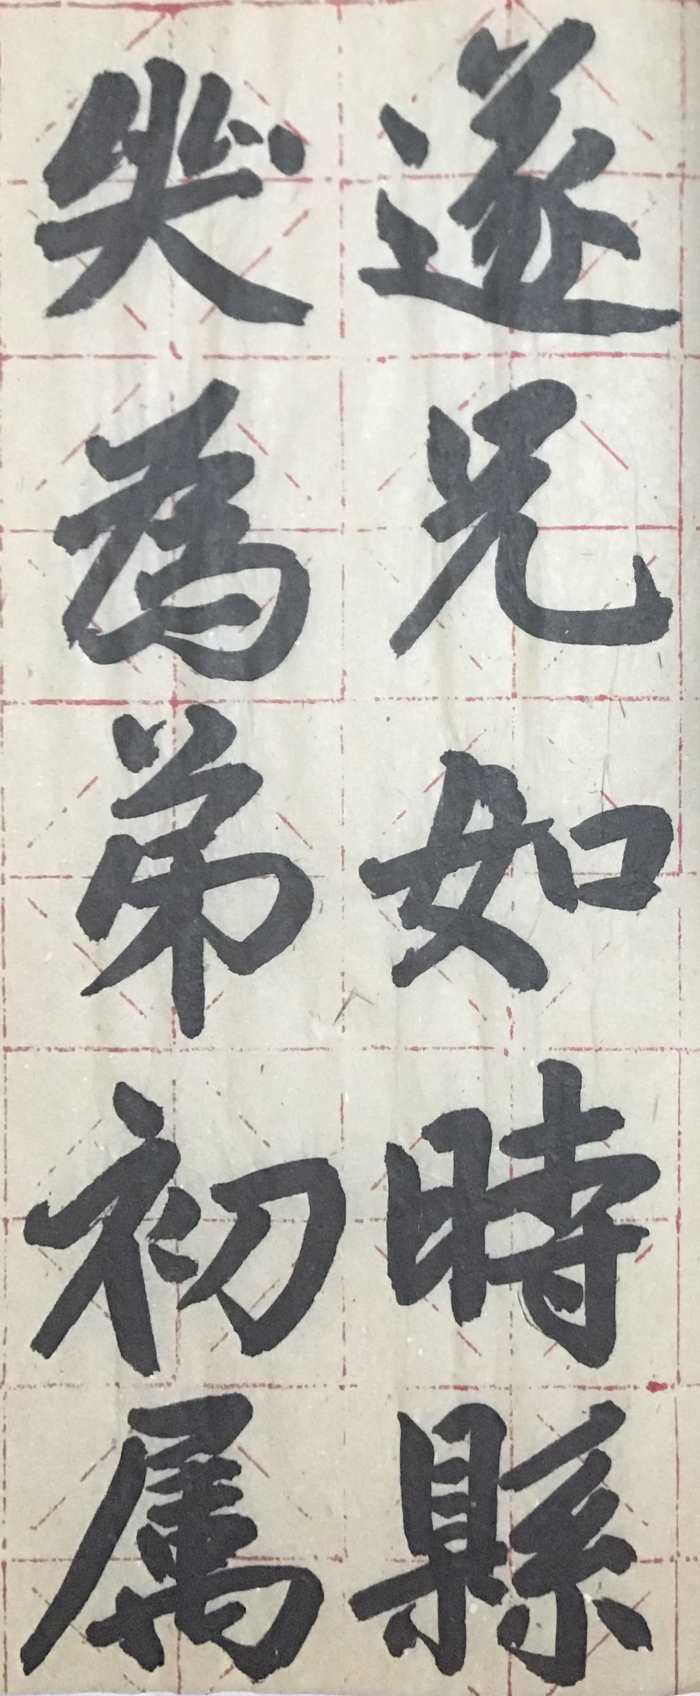 遂兄如時縣
為弟初属